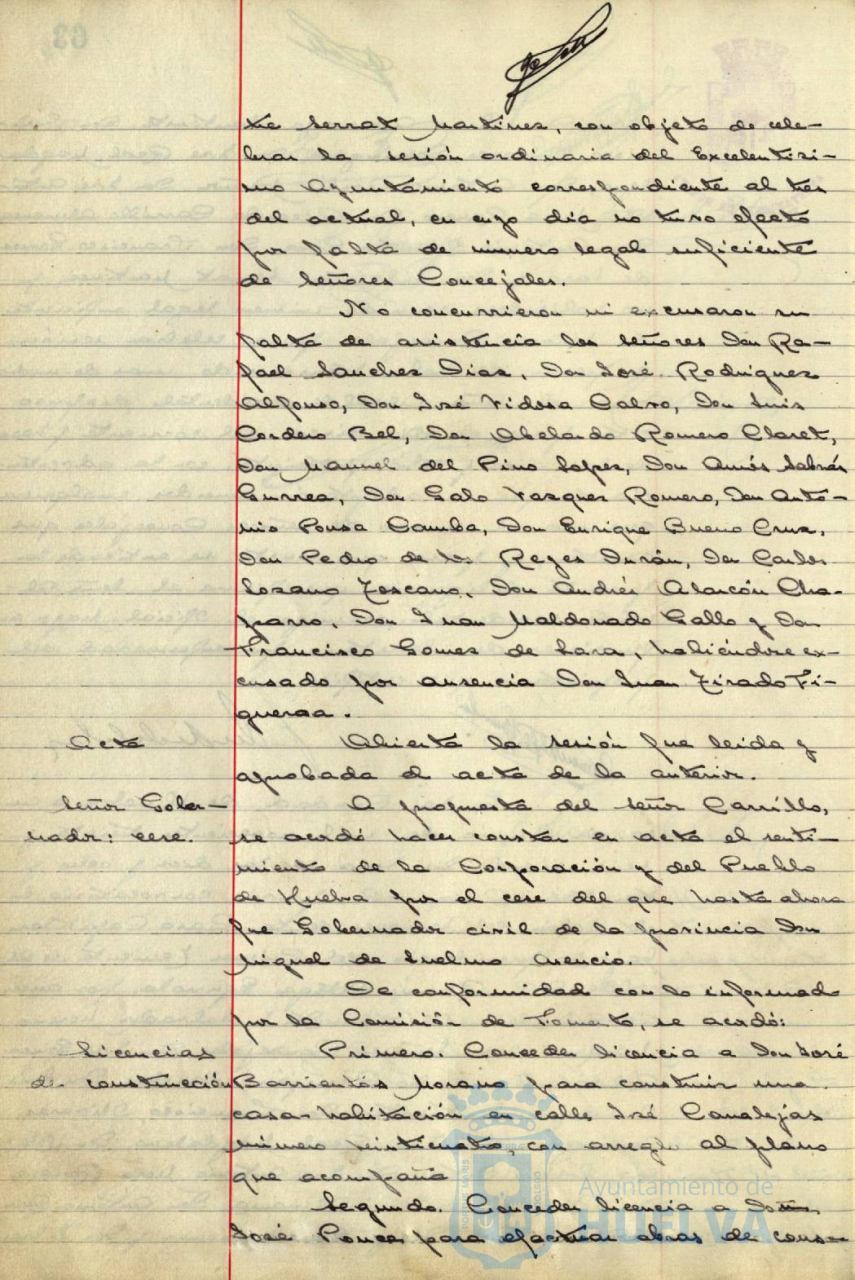 te Serrat Martínez, con objeto de cele-
brar la sesión ordinaria del Excelentísi-
mo Ayuntamiento correspondiente al tres
del actual, en cuyo día no tuvo efecto
por falta de número legal suficiente
de Señores Concejales.
No concurrieron ni excusaron su
falta de asistencia los Señores Don Ra-
fael Sanchez Diaz, Don José Rodriguez
Alfonso, Don José Vidosa Calvo, Don Luis
Cordero Bel, Don Abelardo Romero Claret,
Don Manuel del Pino Lopez, Don Amós Sabrás
Gurrea, Don Galo Vazquez Romero, Don Anto-
nio Ponsa Camba, Don Enrique Bueno Cruz,
Don Pedro de los Reyes Durán, Don Carlos
Lozano Toscano, Don Andrés Alarcón Cha-
parro, Don Juan Maldonado Gallo y Don
Francisco Gomez de Lara, habiéndose ex-
cusado por ausencia Don Juan Tirado Fi-
gueroa.
Acta
Abierta la sesión fue leida y
aprobada el acta de la anterior.
Señor Gober-
nador: cese.
A propuesta del señor Carrillo,
se acordó hacer constar en acta el senti-
miento de la Corporación y del Pueblo
de Huelva por el cese del que hasta ahora
fue Gobernador civil de la provincia Don
Miguel de Luelmo Asencio.
De conformidad con lo informado
por la Comisión de Fomento, se acordó:
Licencias
de construcción
Primero. Conceder licencia a Don José
Barrientos Morano para construir una
casa-habitación en calle José Canalejas
número veinticuatro, con arreglo al plano
que acompaña
Segundo. Conceder licencia a Don
José Ponce para efectuar obras de cons-
Ayuntamiento de
HUELVA